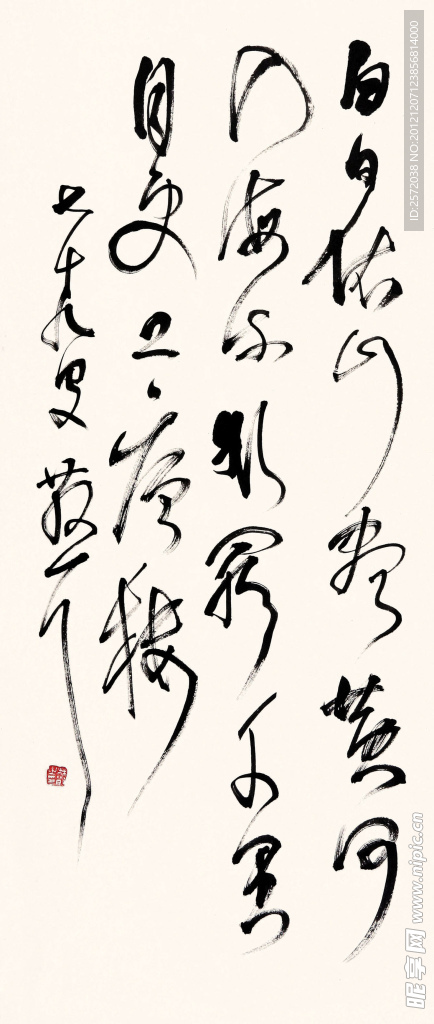 白日依山盡黄河
入海流欲窮千里
目更上一層樓
七十九叟
ID:2572038 NO:20121207123856814000
昵享网 www.nipic.cn